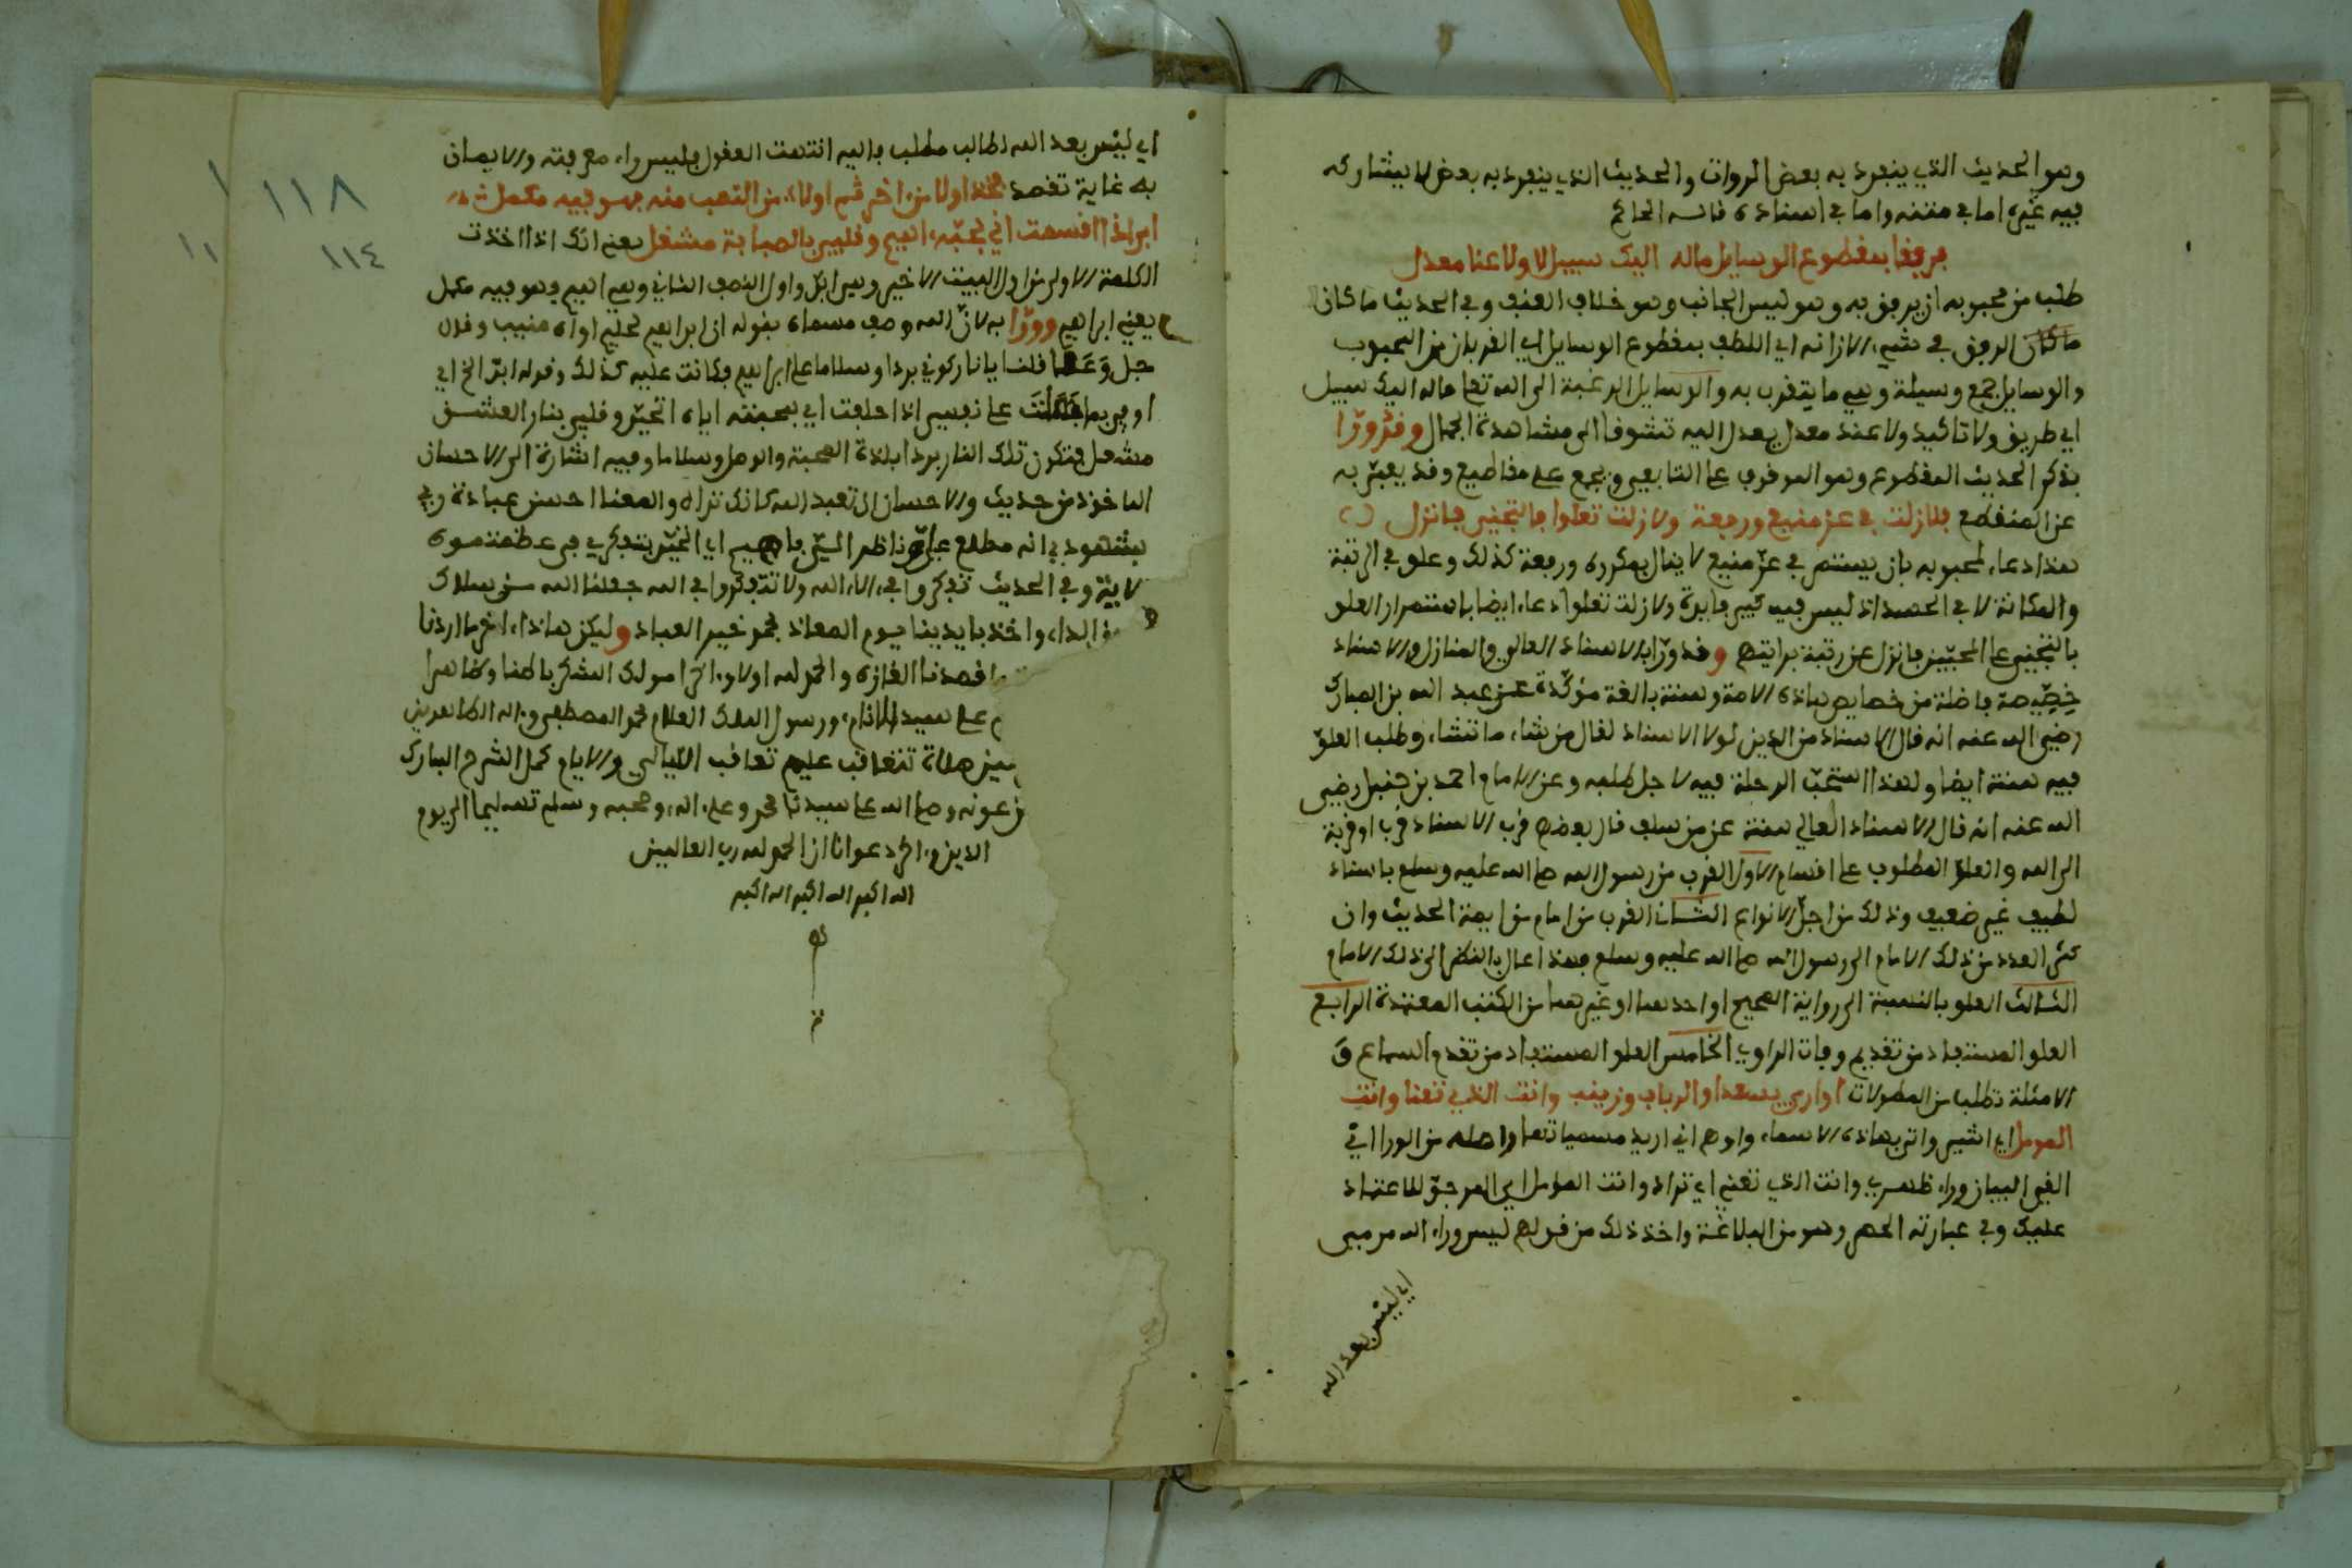 وهو الحديث الذي ينفرد به بعض الروات والحديث الذي ينفرد به بعض لا يشاركه
فيه غيره اما في متنه واما في اسناده قاله الحاكم
فرفقا بمقطوع الوسايل ماله اليك سبيل لا ولا عنا معدل
طلب من محبوبه ان يرفق به وهو ليس الجانب وهو خلاف العنف وفي الحديث ما كان
ما كان الرفق في شيء الا زانه اي اللطف بمقطوع الوسايل اي القربان من المحبوب
والوسايل جمع وسيلة وهي ما يتقرب به والوسايل الرغبة الى الله تعا ماله اليك سبيل
اي طريق ولا تاكيد ولا عند معدل يعدل اليه تشوفا الى مشاهدة الجمال وقد ورّا
بذكر الحديث المقطوع وهو الموقوف على التابعي ويجمع على مقاطيع وقد يعبّر به
عن المنقطع فلا زلت في عز منيع ورفعة ولا زلت تعلوا بالتجني فانزل
هذا دعاء لمحبوبه بان يستمر في عزّ منيع لا ينال بمكروه ورفعة كذلك وعلو في الرتبة
والمكانة لا في الحسد اذ ليس فيه كبير فايدة ولا زلت تعلوا دعاء ايضا باستمرار العلو
بالتجني على المحبّين فانزل عن رتبة براتبهم وقد ورّا بالاسناد العالي والنازل والاسناد
خصّيصة فاضلة من خصايص هاذه الامة وسنة بالغة مؤكّدة عن عبد الله بن المبارك
رضي الله عنه انه قال الاسناد من الدين لولا الاسناد لقال من شاء ما شاء وطلب العلوّ
فيه سنة ايضا ولهذا استحبّ الرحلة فيه لاجل طلبه وعن الامام احمد بن حنبل رضي
الله عنه انه قال الاسناد العالي سنة عن من سلف قال بعضهم قرب الاسناد قرب او قربة
الى الله والعلوّ المطلوب على اقسام الاول القرب من رسول الله صلى الله عليه وسلم باسناد
نظيف غير ضعيف وذلك من اجلّ الانواع الثاني القرب من امام من ايمة الحديث وان
كثر العدد من ذلك الامام الى رسول الله صلى الله عليه وسلم فهذا عال بالنظر الى ذلك الامام
الثالث العلو بالنسبة الى رواية الصحيح او احدهما او غيرهما من الكتب المعتمدة الرابع
العلو المستفاد من تقديم وفات الراوي الخامس العلو المستفاد من تقدم السماع و
الامثلة تطلب من المطولات اواري بسعدا والرباب وزينب وانت الذي تعنا وانت
المومل اي اشير واتر بهاذه الاسماء واوهم اني اريد مسمياتها واصله من الورا اي
القي البيان وراء ظهري وانت الذي تعني اي تراد وانت المومل اي المرجوّ للاعتماد
عليك وفي عبارته الحصر وهو من البلاغة واخذ ذلك من قولهم ليس وراء الله مرمى
اي ليس بعد الله
اي ليس بعد الله لطالب مطلب فاليه انتهت العقول فليس وراء معرفته والايمان
به غاية تقصد فخذ اولا من اخر ثم اولا من النصف منه فهو فيه مكمل
ابر اذا اقسمت اني بحبّه اهيم وقلبي بالصبابة مشغل يعني انك اذا اخذت
الكلمة الاولى من اول البيت الاخير وهي ابرّ واول النصف الثاني وهي اهيم وهو فيه مكمل
يعني ابراهيم وورّا به لانّ الله وصف مسماه بقوله ان ابراهيم لحليم اواه منيب وقال
جل وعلا قلنا يا نار كوني بردا وسلاما على ابراهيم فكانت عليه كذلك وقوله ابرّ الخ اي
اوفي بما على نفسي اذا حلفت اي بمحبته اياه اتحيّر وقلبي بنار العشق
مشعل فتكون تلك النار بردا بلذة المحبة والوصل وسلاما وفيه اشارة الى الاحسان
الماخوذ من حديث والاحسان ان تعبد الله كانك تراه والمعنا احسن عبادة ربي
بشهودي انه مطلع عليّ ناظر اليّ فاهيم اي اتحيّر بتفكري في عظمته سوى
وفي الحديث تفكروا في الاء الله ولا تتفكروا في الله جعلنا الله من سلاك
الداء واخذ بايدينا يوم المعاد بمحمد خير العباد وليكن هاذا اخر ما اردنا
قصدنا القازه والحمد لله اولا واخرا مولى الشكر باطنا وظاهرا
على سيد الانام ورسول الملك العلام محمد المصطفى واله الطاهرين
صلاة تتعاقب عليهم تعاقب الليالي والايام كمل الشرح المبارك
عونه وصلى الله على سيدنا محمد وعلى اله وصحبه وسلم تسليما الى يوم
الدين واخر دعوانا ان الحمد لله رب العالمين
الله اكبر الله اكبر الله اكبر
١١٨
١١٤
١
١١